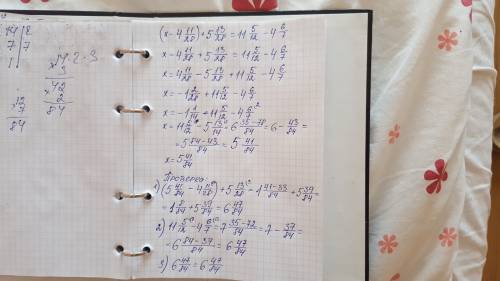 14
7
1
2
7
14 · 2 · 3
× 3
42
× 2
84
× 12
7
84
(x - 4 11/28) + 5 13/28 = 11 5/12 - 4 6/7
x - 4 11/28 + 5 13/28 = 11 5/12 - 4 6/7
x = 4 11/28 - 5 13/28 + 11 5/12 - 4 6/7
x = -1 2/28 + 11 5/12 - 4 6/7
x = -1 1/14 + 11 5/12 - 4 6/7
x = 11 5/12 - 5 13/14 = 6 35-78/84 = 6 - 43/84 =
= 5 84-43/84 = 5 41/84
x = 5 41/84
Проверка:
1) (5 41/84 - 4 11/28) + 5 13/28 = 1 41-33/84 + 5 39/84 =
= 1 8/84 + 5 39/84 = 6 47/84
2) 11 5/12 - 4 6/7 = 7 35-72/84 = 7 - 37/84 =
= 6 84-37/84 = 6 47/84
3) 6 47/84 = 6 47/84